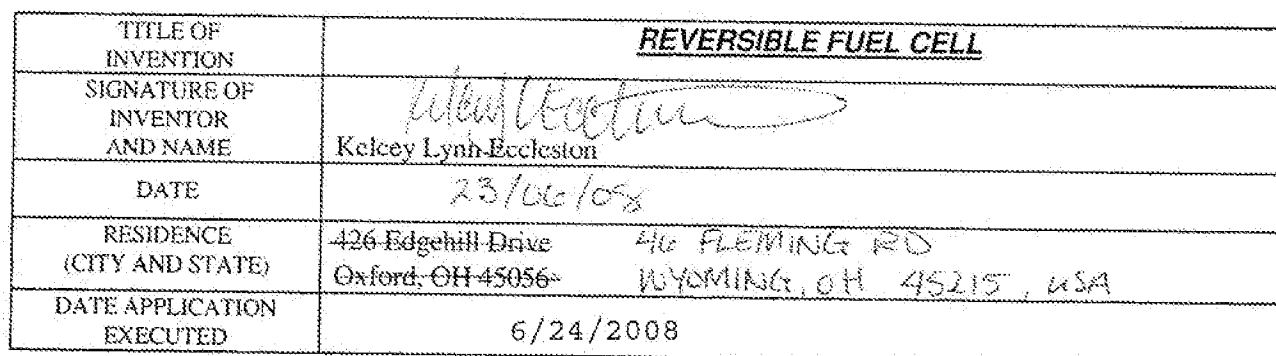 TITLE OF
INVENTION
REVERSIBLE FUEL CELL
SIGNATURE OF
INVENTOR
AND NAME
Kelcey Lynn Eccleston
DATE
23/06/08
RESIDENCE
(CITY AND STATE)
426 Edgehill Drive
Oxford, OH 45056
46 FLEMING RD
WYOMING, OH 45215, USA
DATE APPLICATION
EXECUTED
6/24/2008